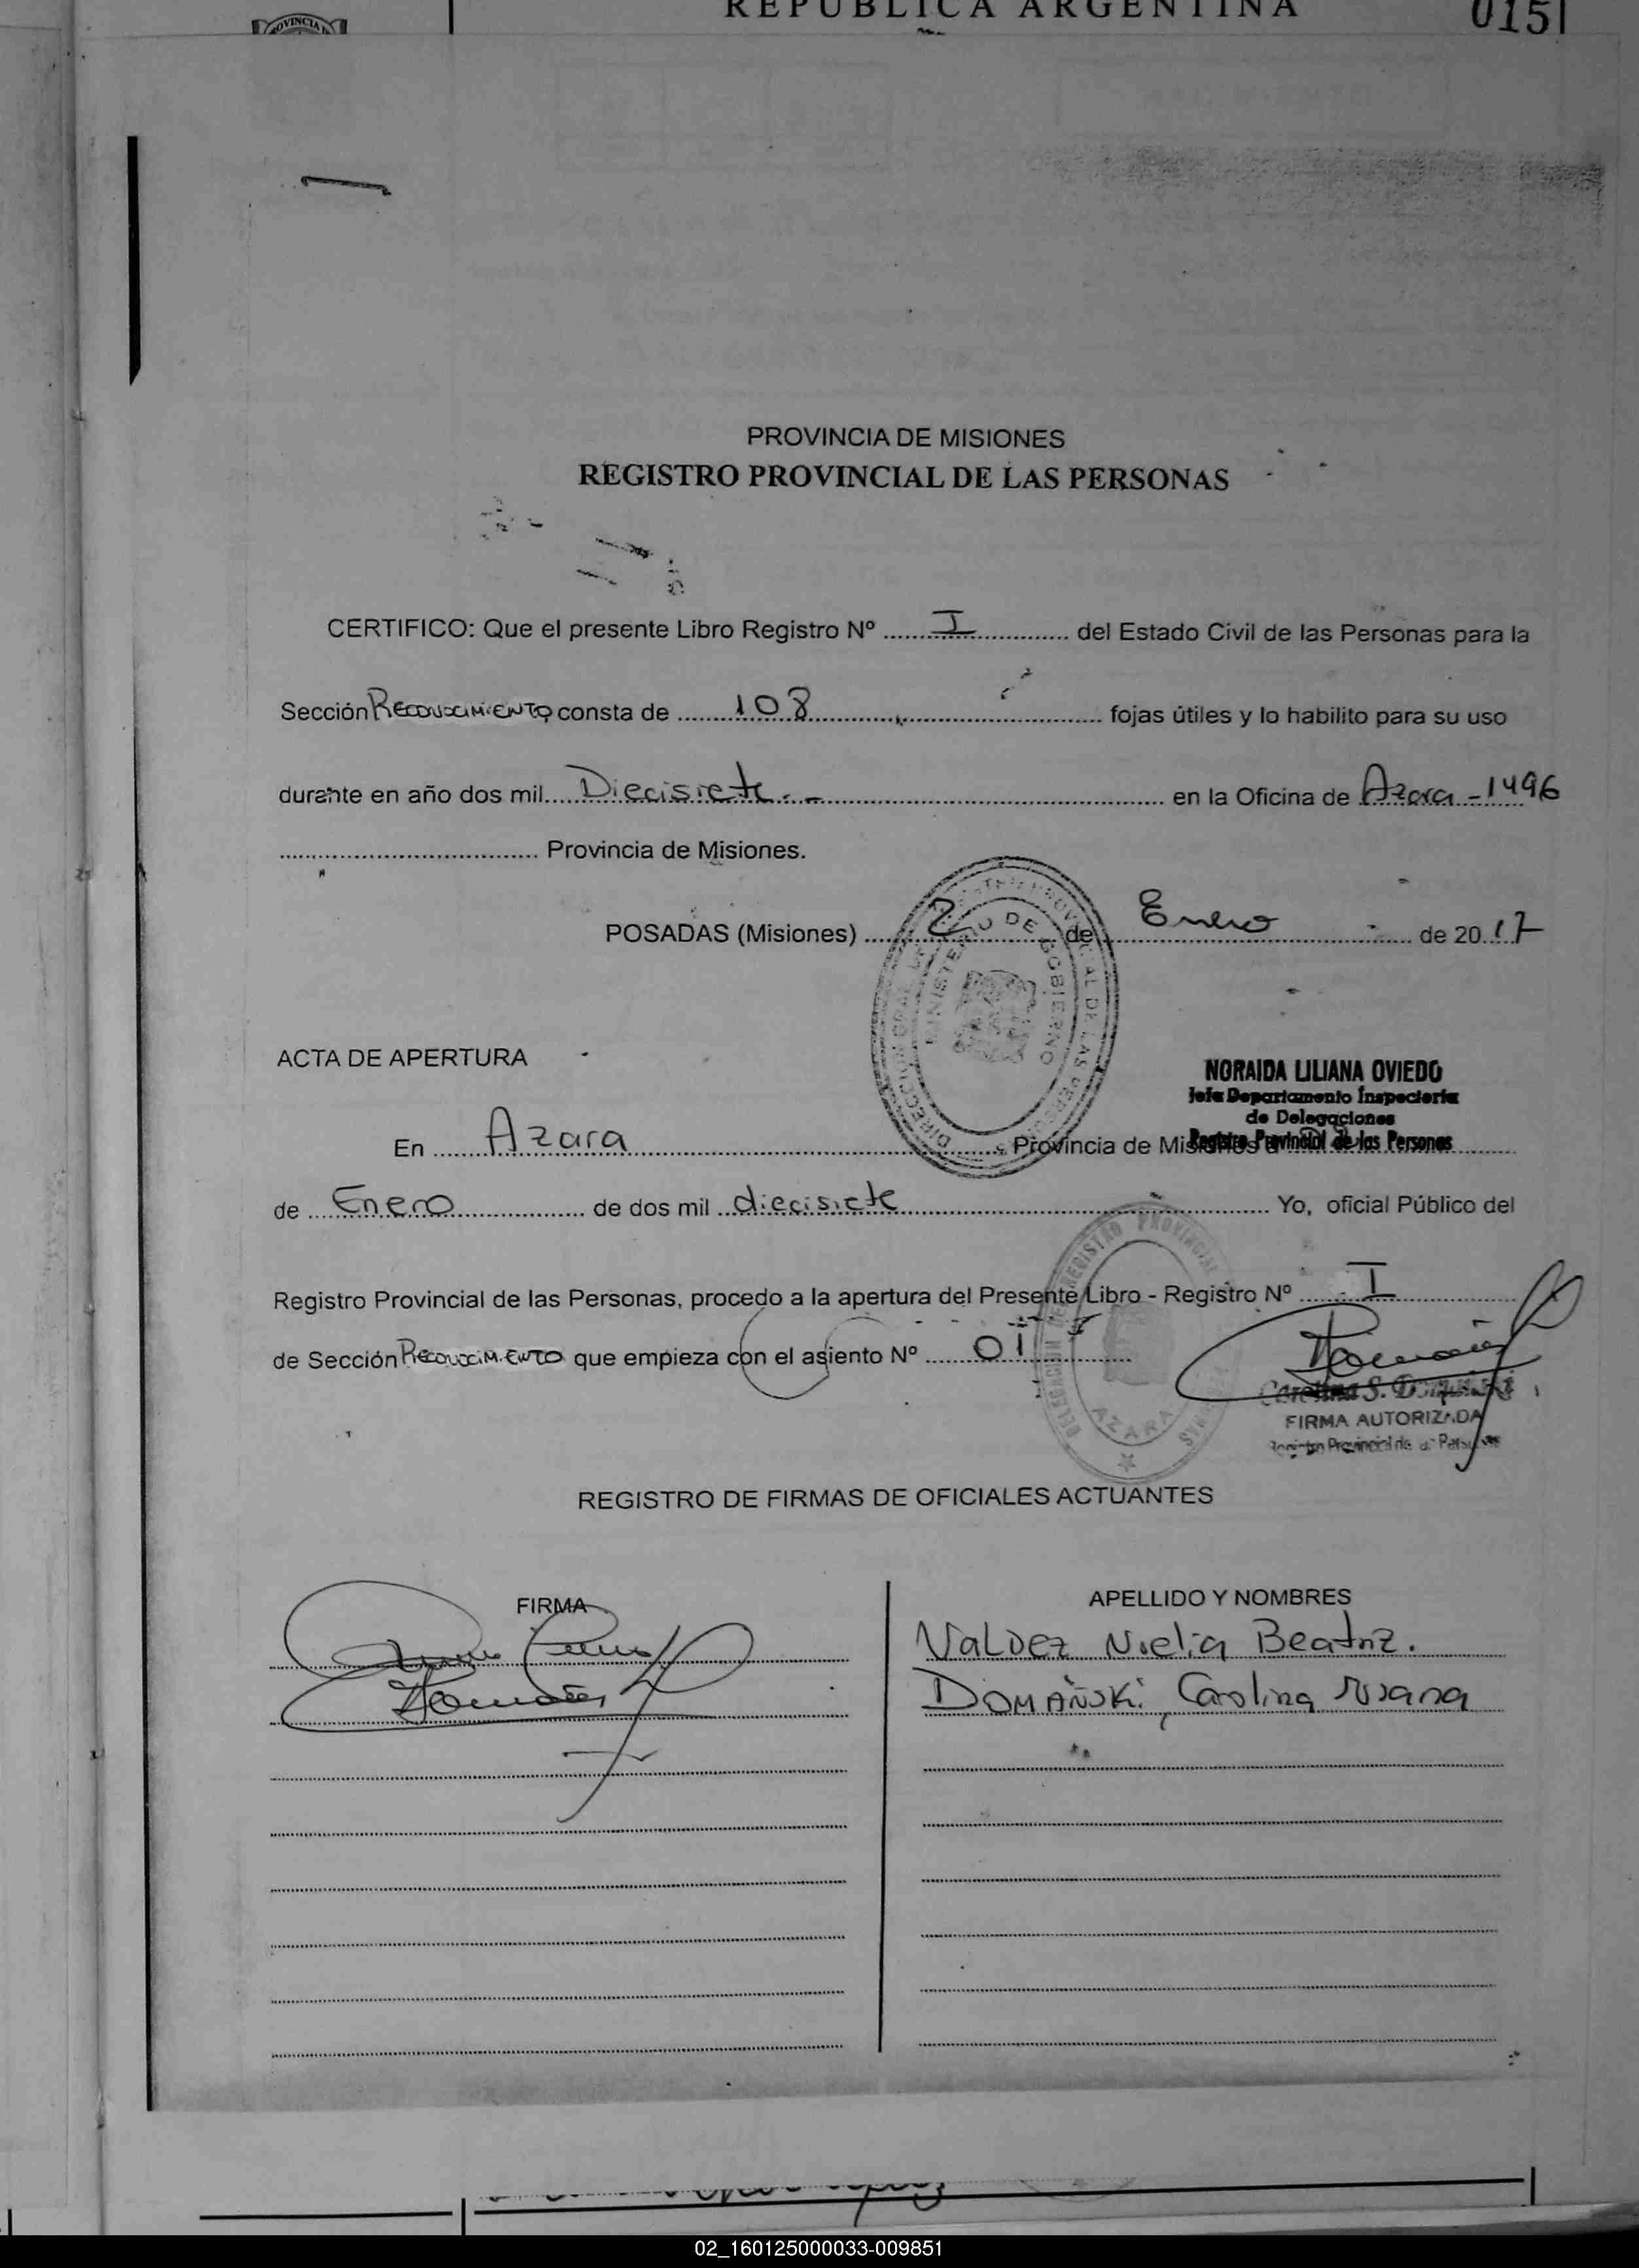 REPUBLICA ARGENTINA 015
PROVINCIA
PROVINCIA DE MISIONES
REGISTRO PROVINCIAL DE LAS PERSONAS
CERTIFICO: Que el presente Libro Registro Nº I del Estado Civil de las Personas para la
Sección RECONOCIMIENTO consta de 108 fojas útiles y lo habilito para su uso
durante en año dos mil Diecisiete.- en la Oficina de Azara - 1496
Provincia de Misiones.
POSADAS (Misiones) 2 de Enero de 2017
MINISTERIO DE GOBIERNO
ACTA DE APERTURA
NORAIDA LILIANA OVIEDO
Jefa Departamento Inspectoría
de Delegaciones
Registro Provincial de las Personas
En Azara Provincia de Misiones a
de Enero de dos mil diecisiete Yo, oficial Público del
Registro Provincial de las Personas, procedo a la apertura del Presente Libro - Registro Nº I
de Sección RECONOCIMIENTO que empieza con el asiento Nº 01
DELEGACION DEL REGISTRO PROVINCIAL
AZARA
Carolina S.
FIRMA AUTORIZADA
Registro Provincial de las Personas
REGISTRO DE FIRMAS DE OFICIALES ACTUANTES
FIRMA APELLIDO Y NOMBRES
Valdez Nielia Beatriz.
DOMAÑSKi, Carolina Susana
02_160125000033-009851